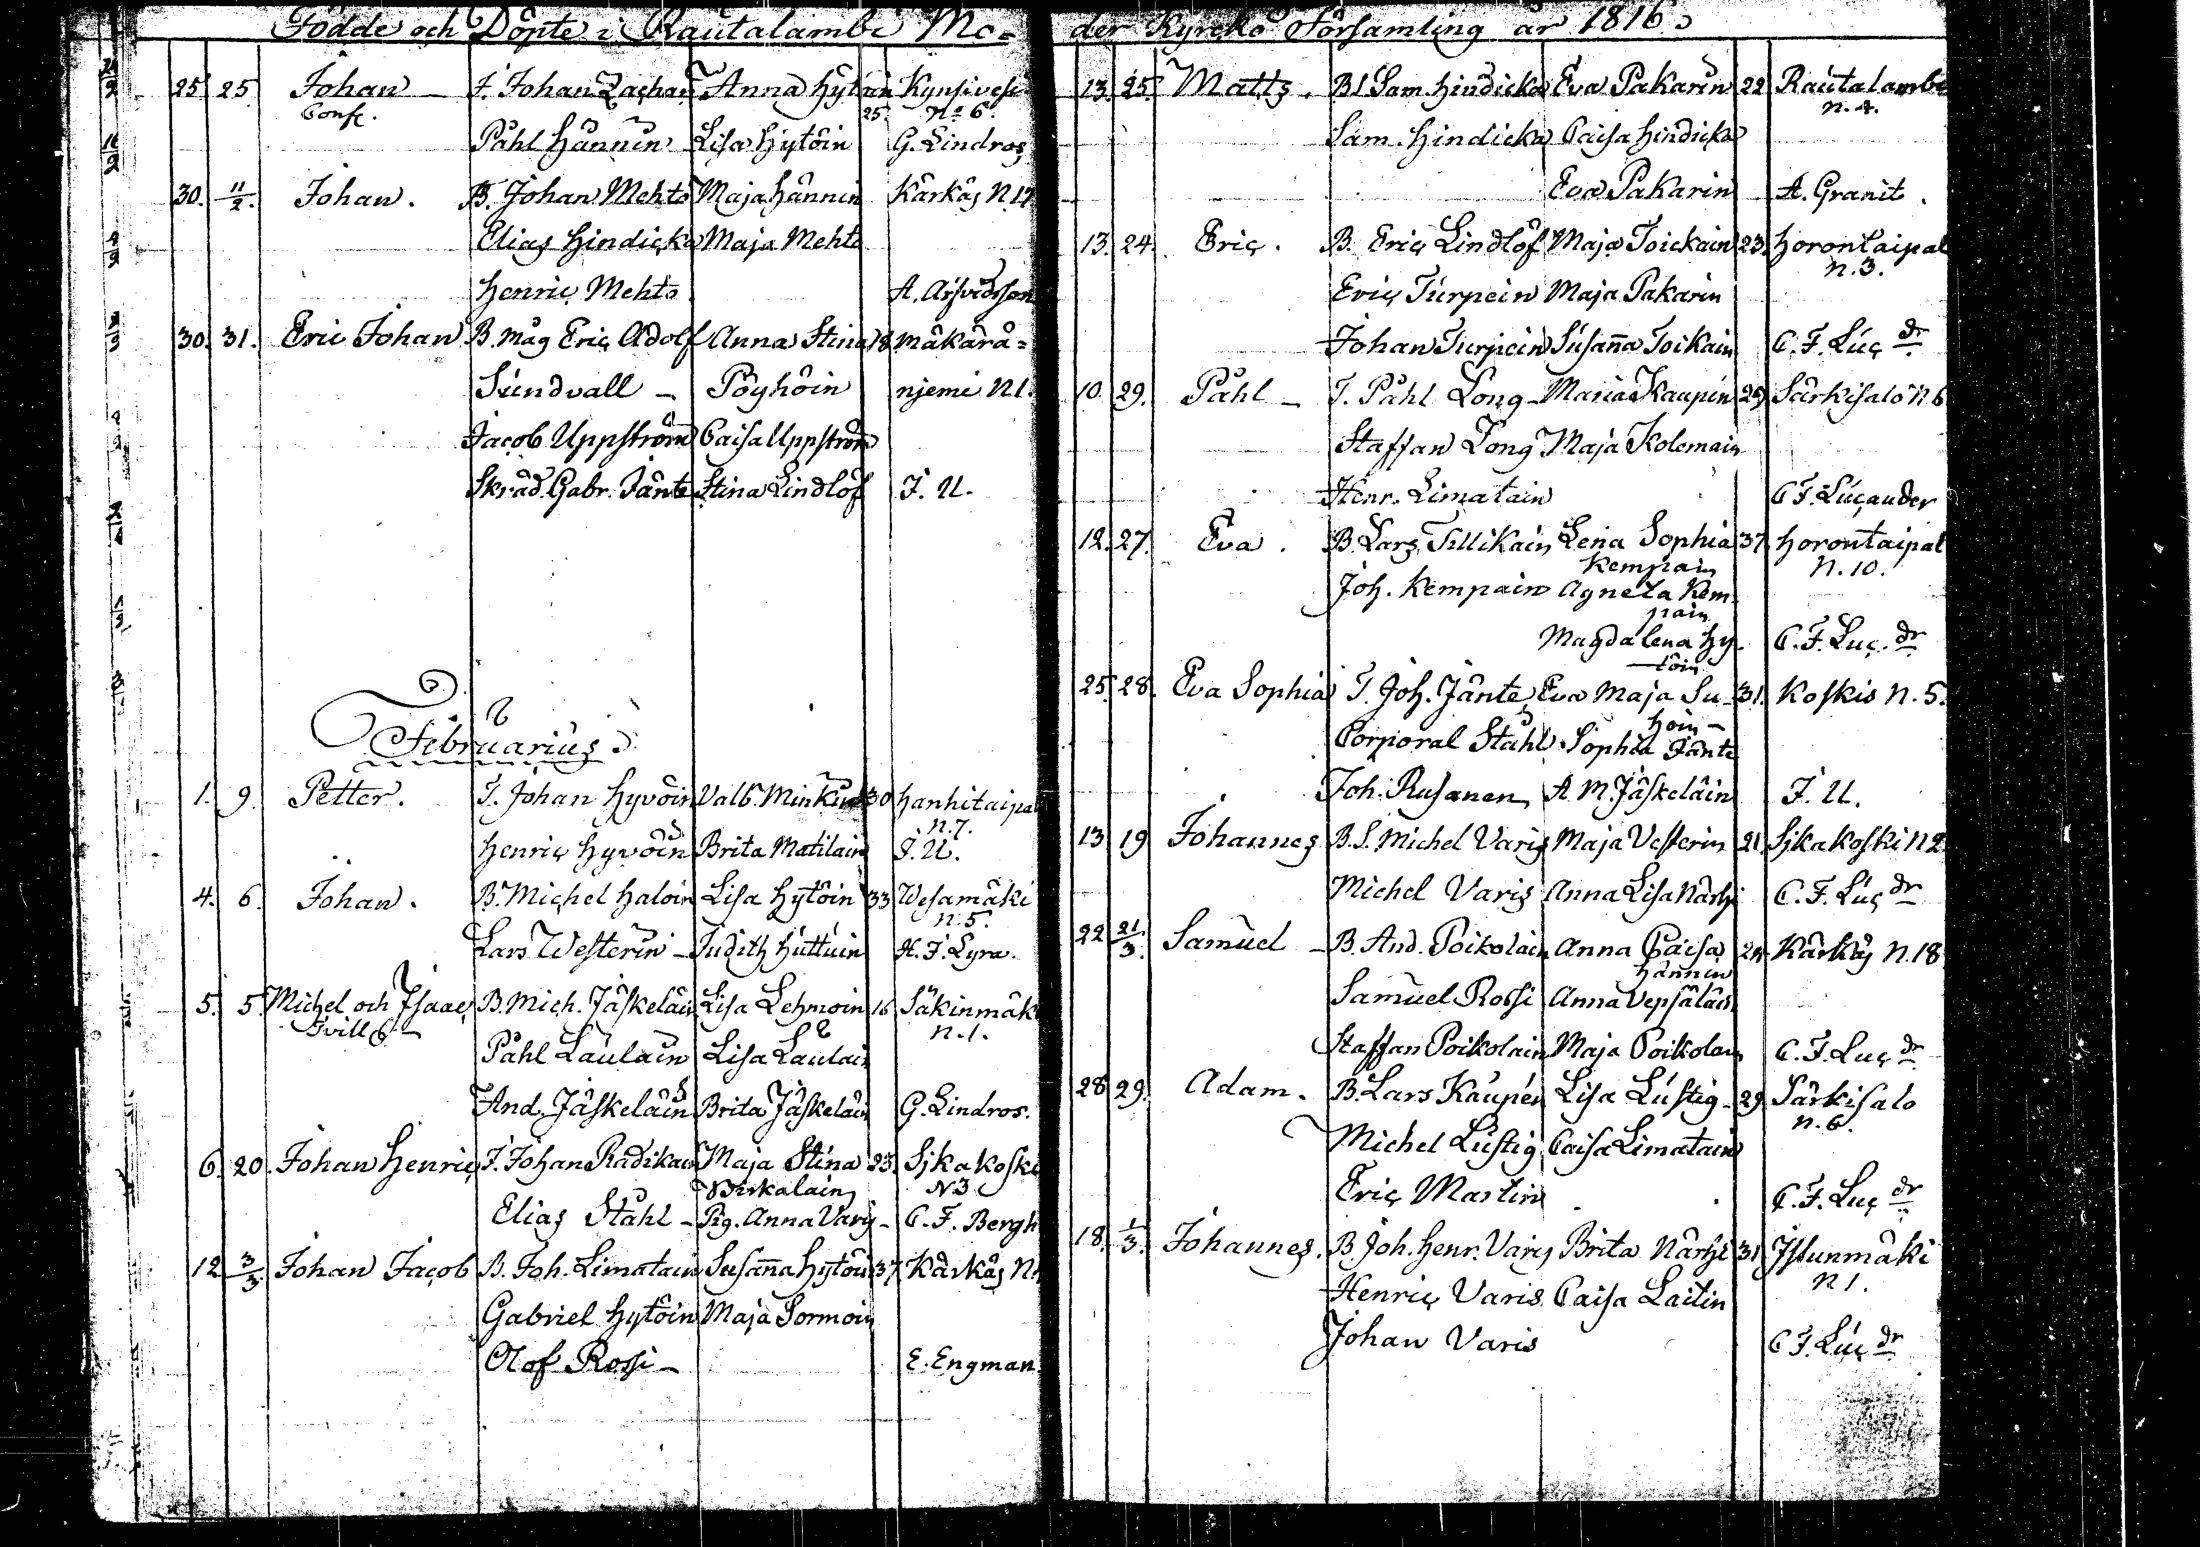 Födde och Döpte i Rautalambi Mo-
25 25 Johan — T. Johan Zachar Anna Hytöin Kynsivesi
Confr. 25. No 6.
Påhl Hännin Lisa Hytöin G. Lindros
30. 11/2. Johan. B. Johan Mehto Maja Hännin Kärkäs N. 12
Elias Hindicka Maja Mehto
Henric Mehto A. Arfvidsson
30. 31. Eric Johan B. Mag Eric Adolf Anna Stina 18 Mäkärä=
Sundvall — Pöyhöin njemi N1.
Jacob Uppström Caisa Uppström
Skräd. Gabr. Jänte Stina Lindlöf J. U.
Februarius
1. 9. Petter. T. Johan Hyvöin Valb. Minkin 30 Hanhitaipal
N. 7.
Henric Hyvöin Brita Matilain J. U.
4. 6. Johan. B. Michel Haloin Lisa Hytöin 33 Wesamäki
N. 5.
Lars Westerin — Judith Huttuin H. J. Lyra.
5. 5 Michel och Isaac B. Mich. Jäskeläin Lisa Lehmoin 16 Säkinmäk
Tvill N. 1.
Påhl Laulain Lisa Laulain
And. Jäskeläin Brita Jäskeläin G. Lindros.
6. 20. Johan Henric T. Johan Radikain Maja Stina 23. Sjkakoski
Pirkalain N3
Elias Stahl — Pig. Anna Varis — C. F. Bergh
12 3/3. Johan Jacob B. Joh. Limatain Susanna Hytöin 37 Kärkäs N.
Gabriel Hytöin Maja Sormoin
Olof Rossi — E. Engman
der Kyrcko Församling år 1816.
13. 25. Matts. Bl Sam. Hindicka Eva Pakarin 22 Rautalambi
N. 4.
Sam. Hindicka Caisa Hindicka
Eva Pakarin A. Granit.
13. 24. Eric. B. Eric Lindlöf Maja Toickain 23. Horontaipal
N. 3.
Eric Turpein Maja Pakarin
Johan Turpein Susanna Toikain C. F. Luc dr
10. 29. Påhl — T. Påhl Long — Maria Kaupin 29 Särkisalo N 6
Staffan Long Maja Kolemain
Henr. Limatain C F. Lucander
12. 27. Eva. B. Lars Tillikain Lena Sophia 37. Horontaipal
Kempain N. 10.
Joh. Kempain Agneta Kem-
pain
Magdalena Hy- C. F. Luc. dr
töin
25. 28. Eva Sophia T. Joh. Jänte Eva Maja Su- 31. Koskis N. 5.
hoin —
Corporal Stahl. Sophia Jänte
Joh. Rusanen A. M. Jäskeläin J. U.
13 19 Johannes B.S. Michel Varis Maja Vesterin 21. Sjkakoski N 2
Michel Varis Anna Lisa Närhi C. F. Luc dr
22 21/3. Samuel — B. And. Poikolain Anna Caisa 24. Kärkäs N. 18
Hännin
Samuel Rossi Anna Vepsäläin
Staffan Poikolain Maja Poikolain C. F. Luc dr
28 29. Adam. B. Lars Kaupén Lisa Lustig — 29. Särkisalo
N. 6.
Michel Lustig Caisa Limatain
Eric Martin C. F. Luc dr
18. 1/3. Johannes. B Joh. Henr. Varis Brita Närhi 31 Jstunmäki
N 1.
Henric Varis Caisa Laitin
Johan Varis C F. Luc dr